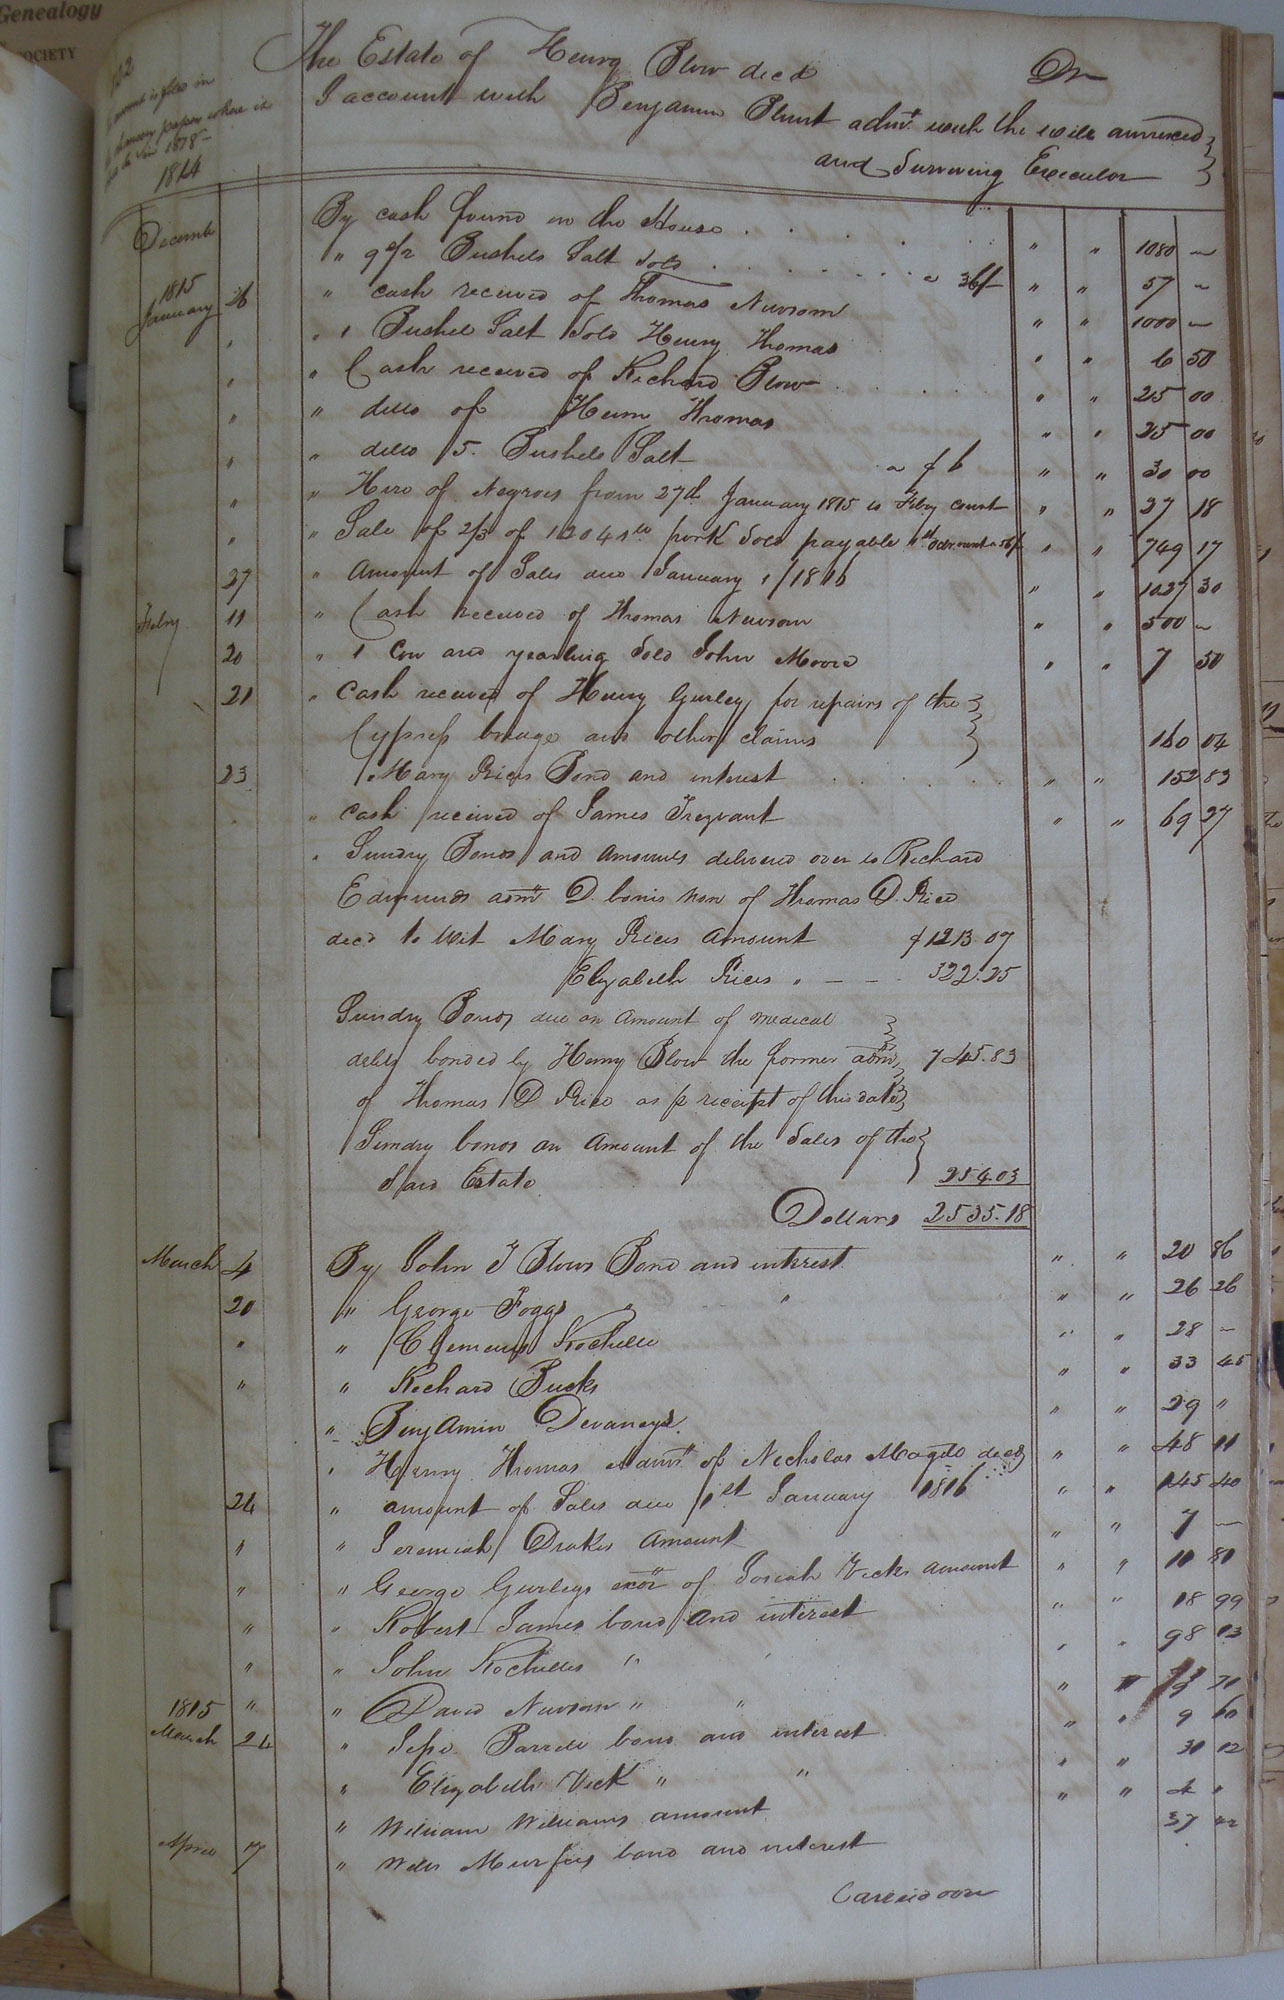 Genealogy
SOCIETY
132
The Estate of Henry Blow decd Dr
In account with Benjamin Blunt admr with the will annexed
and Surviving Executor
1814
Decembr By cash found in the House . . . " " 1080 —
" 9 1/2 Bushels Salt sold . . . a 36/ " " 57 —
1815
January 26 " cash received of Thomas Newsom " " 1000 —
" " 1 Bushel Salt sold Henry Thomas " " 6 50
" " Cash received of Richard Blow . . . " " 25 00
" " ditto of Henry Thomas " " 25 00
" " ditto 5. Bushels Salt a $6 " " 30 00
" " Hire of Negroes from 27th January 1815 to Feby court " " 27 18
" " Sale of 2/3 of 12041 lb pork sold payable " " 749 17
27 " Amount of Sales due January 1/1816 " " 1037 30
Feby 11 " Cash received of Thomas Newsom " " 500 —
20 " 1 Cow and yearling sold John Moore " " 7 50
21 " Cash received of Henry Gurley for repairs of the
Cypress bridge and other claims 160 04
23 Mary Rices Bond and interest . . . " " 152 83
" Cash received of James Trezvant " " 69 27
" Sundry Bonds and amounts delivered over to Richard
Edmunds admr D. bonis non of Thomas D. Rice
decd to wit Mary Rices amount $1213.07
Elizabeth Rices " — — 322.25
Sundry Bonds due on amount of medical
debts bonded by Henry Blow the former admr 745.83
of Thomas D Rice as p receipt of this date
Sundry bonds on amount of the Sales of the
said Estate 254.03
Dollars 2535.18
March 4 By John T Blows Bond and interest " " 20 86
20 " George Foggs " " " " 26 26
" " Clements Rochelle " " 28 —
" " Richard Bucks " " 33 45
" Benjamin Devaneys. " " 29 "
" Henry Thomas admr of Nicholas decd " " 48 11
24 " amount of Sales due 1st January 1816 " " 145 40
" " Jeremiah Drakes amount " " 7 —
" " George Gurleys exor of Josiah Vicks amount " " 10 80
" " Robert James bond and interest " " 18 99
" " John Rochelles " " " " 98 13
1815 " " David Newsom " " " " 70
March 24 " Jesse Barrett bond and interest " " 9 60
" Elizabeth Vick " " " " 30 12
" William Williams amount " " 4 "
April 7 " Wills Murfees bond and interest 37
Carried over